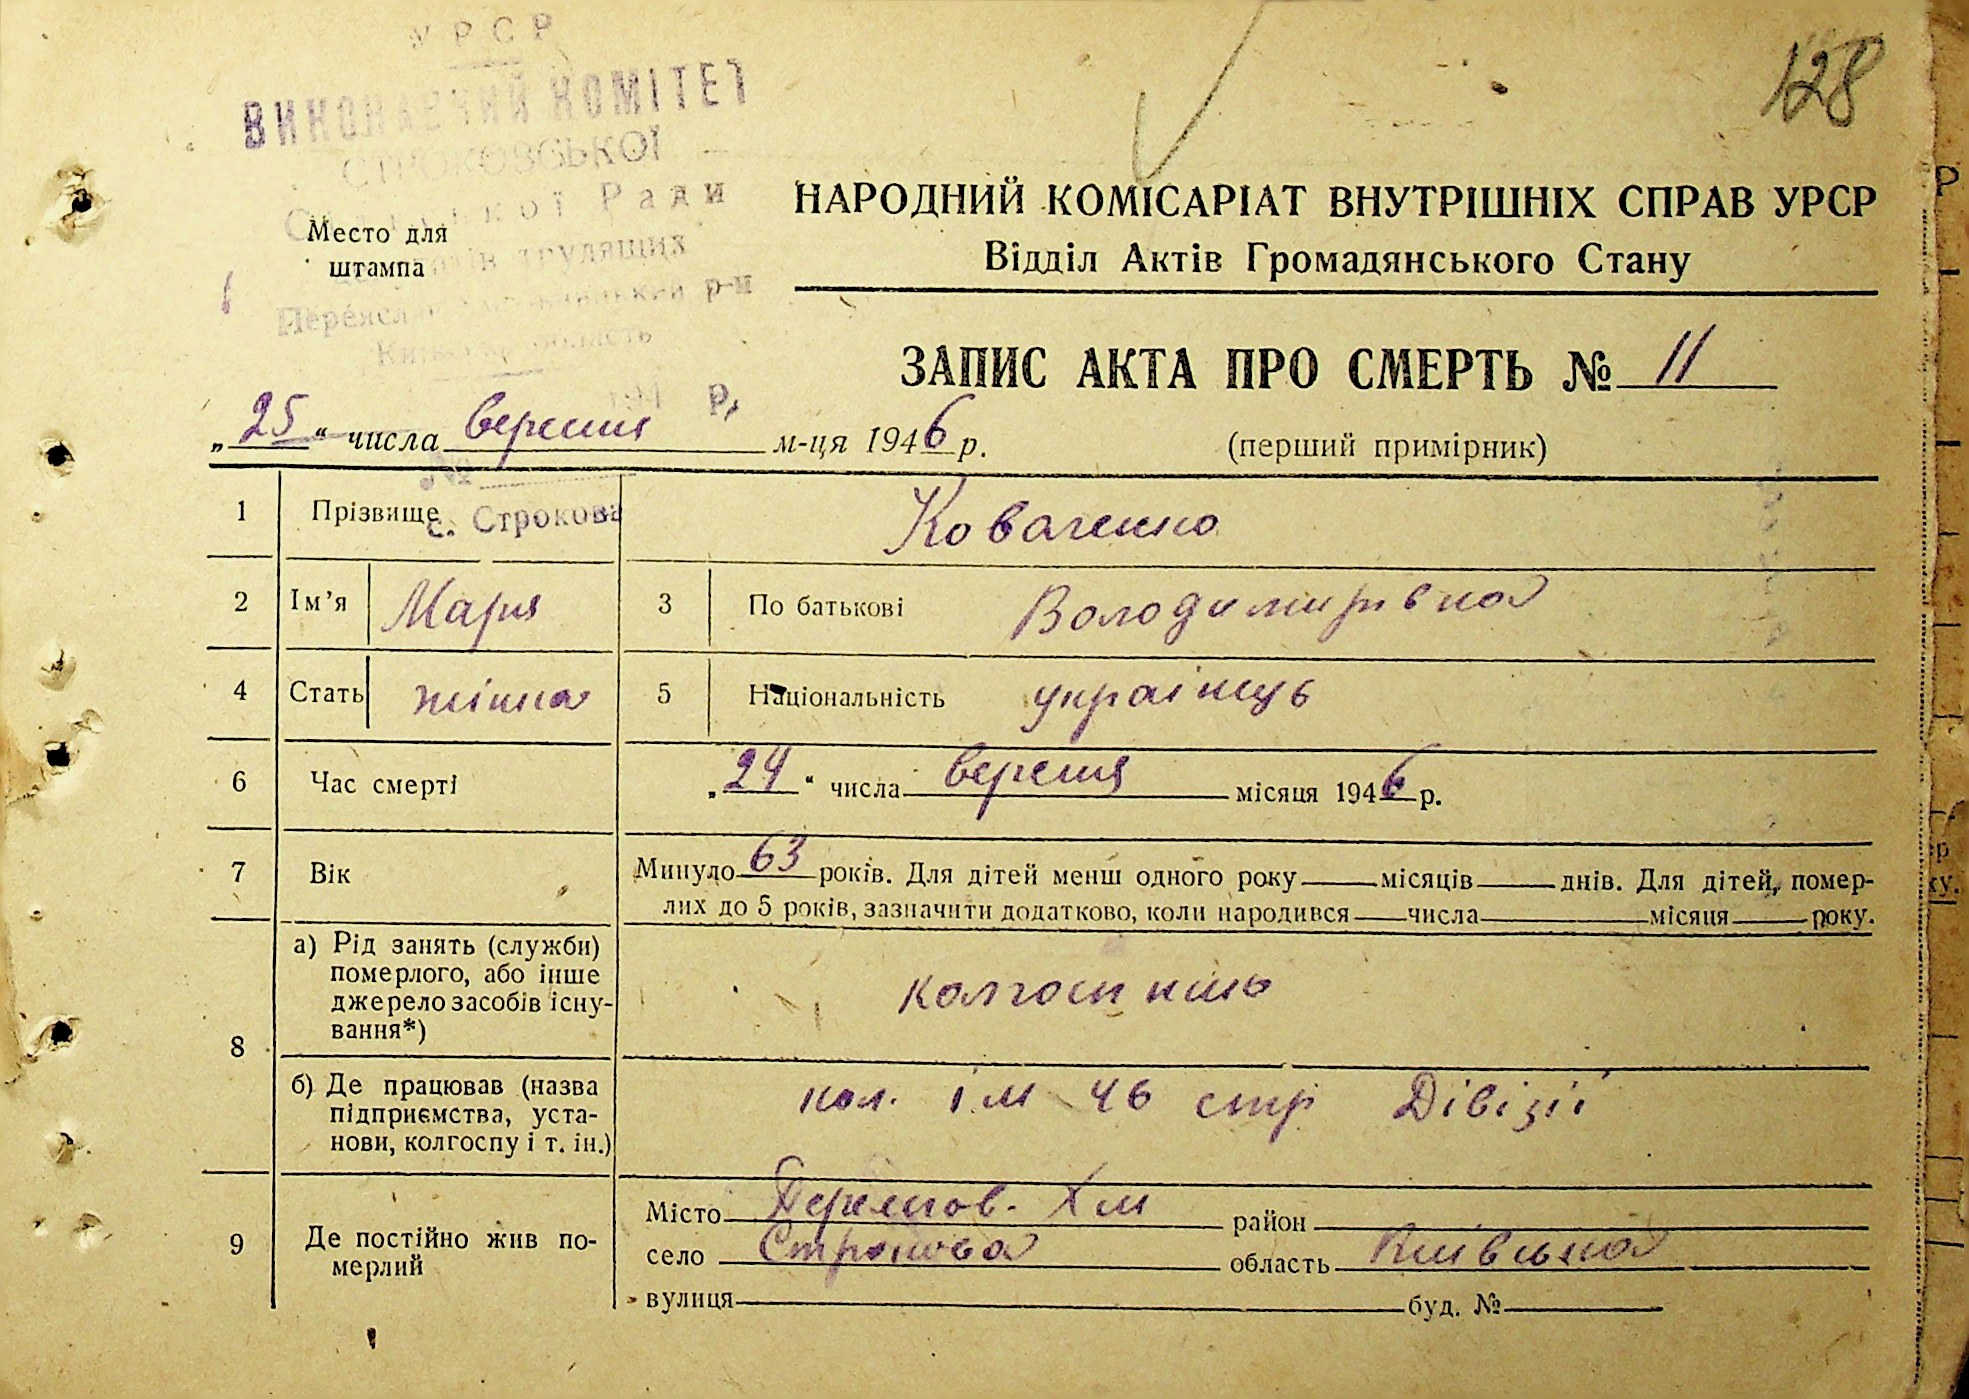 УРСР
128
ВИКОНАВЧИЙ КОМІТЕТ
СТРОКОВСЬКОЇ
Сільської Ради
трудящих
р-н
область
Место для
штампа
НАРОДНИЙ КОМІСАРІАТ ВНУТРІШНІХ СПРАВ УРСР
Відділ Актів Громадянського Стану
ЗАПИС АКТА ПРО СМЕРТЬ № 11
194 р.
„25“ числа вересня м-ця 1946 р.
(перший примірник)
№
с. Строкова
1 Прізвище Коваченко
2 Ім’я Марія 3 По батькові Володимирівна
4 Стать жінка 5 Національність українць
6 Час смерті „24“ числа вересня місяця 1946 р.
7 Вік Минуло 63 років. Для дітей менш одного року місяців днів. Для дітей, помер-
лих до 5 років, зазначити додатково, коли народився числа місяця року.
8 а) Рід занять (служби)
померлого, або інше
джерело засобів існу-
вання*)
колгоспник
б) Де працював (назва
підприємства, уста-
нови, колгоспу і т. ін.)
кол. ім 46 стр Дівізії
9 Де постійно жив по-
мерлий
Місто Хм район
село Строкова область Київська
вулиця буд. №